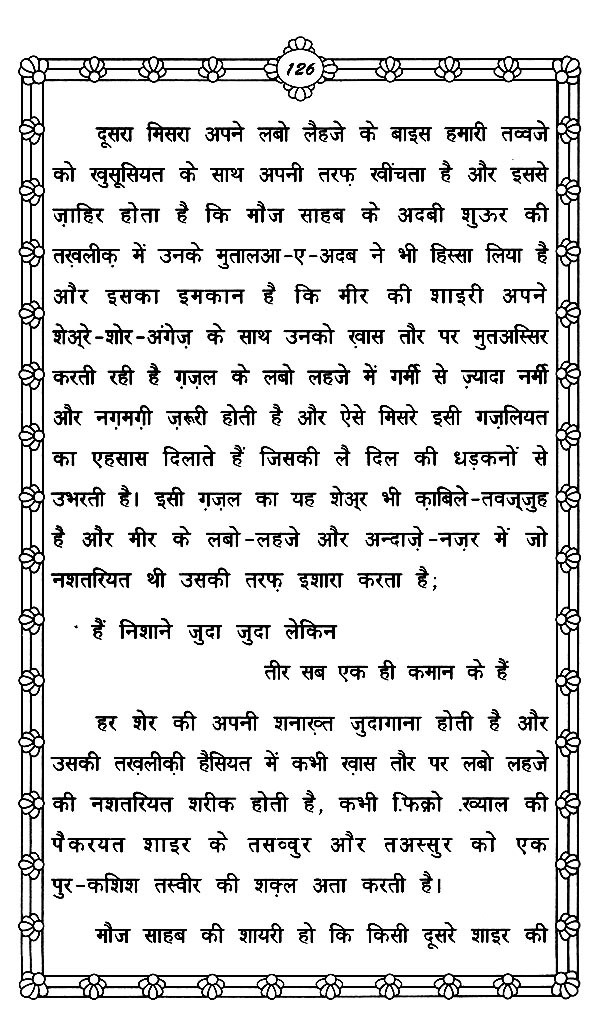 126
दूसरा मिसरा अपने लबो लैहजे के बाइस हमारी तव्वजे
को खुसूसियत के साथ अपनी तरफ़ खींचता है और इससे
ज़ाहिर होता है कि मौज साहब के अदबी शुऊर की
तख़लीक़ में उनके मुतालआ-ए-अदब ने भी हिस्सा लिया है
और इसका इमकान है कि मीर की शाइरी अपने
शेअ्रे-शोर-अंगेज़ के साथ उनको ख़ास तौर पर मुतअस्सिर
करती रही है ग़ज़ल के लबो लहजे में गर्मी से ज़्यादा नर्मी
और नग़मगी ज़रूरी होती है और ऐसे मिसरे इसी गज़लियत
का एहसास दिलाते हैं जिसकी लै दिल की धड़कनों से
उभरती है। इसी ग़ज़ल का यह शेअ्र भी क़ाबिले-तवज्जुह
है और मीर के लबो-लहजे और अन्दाज़े-नज़र में जो
नशतरियत थी उसकी तरफ़ इशारा करता है;
हैं निशाने जुदा जुदा लेकिन
तीर सब एक ही कमान के हैं
हर शेर की अपनी शनाख़्त जुदागाना होती है और
उसकी तख़लीक़ी हैसियत में कभी ख़ास तौर पर लबो लहजे
की नशतरियत शरीक होती है, कभी फ़िक्रो ख़्याल की
पैकरयत शाइर के तसव्वुर और तअस्सुर को एक
पुर-कशिश तस्वीर की शक्ल अता करती है।
मौज साहब की शायरी हो कि किसी दूसरे शाइर की